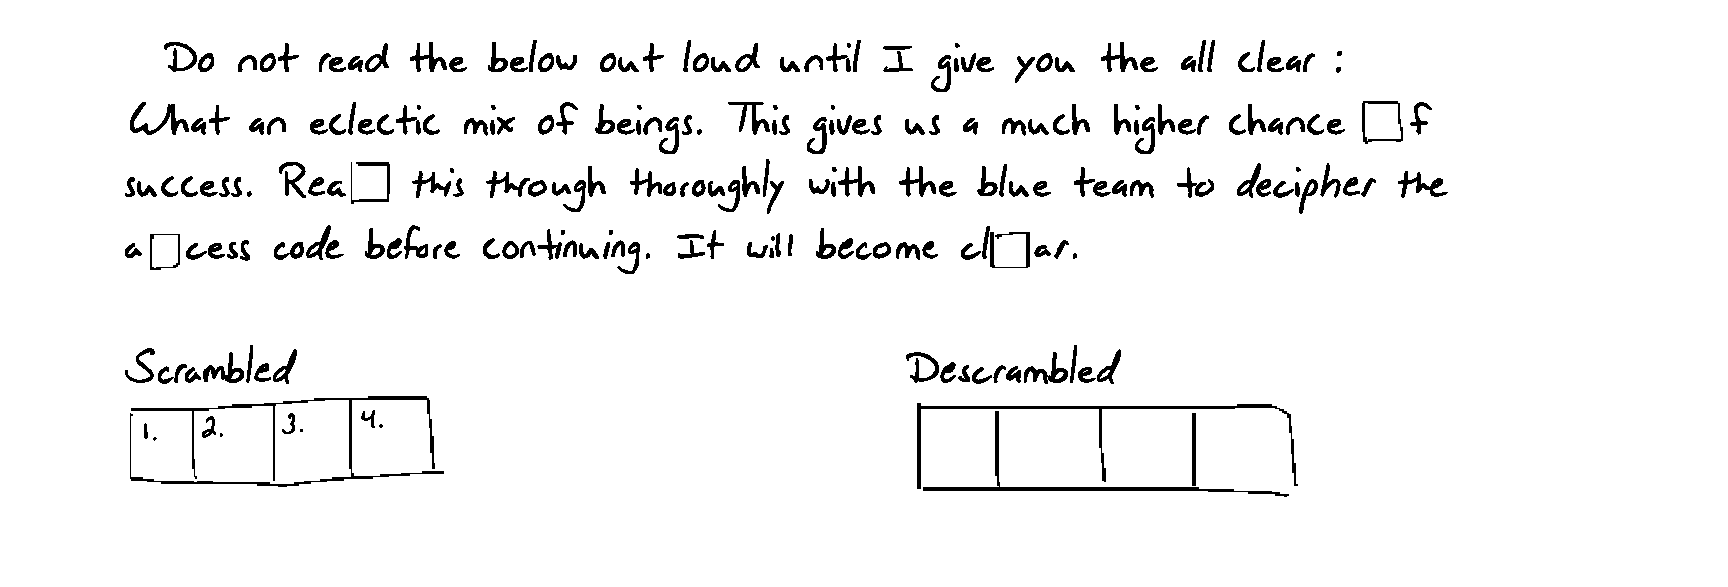 Do not read the below out loud until I give you the all clear :
What an eclectic mix of beings. This gives us a much higher chance □f
success. Rea□ this through thoroughly with the blue team to decipher the
a□cess code before continuing. It will become cl□ar.
Scrambled
Descrambled
1. 2. 3. 4.